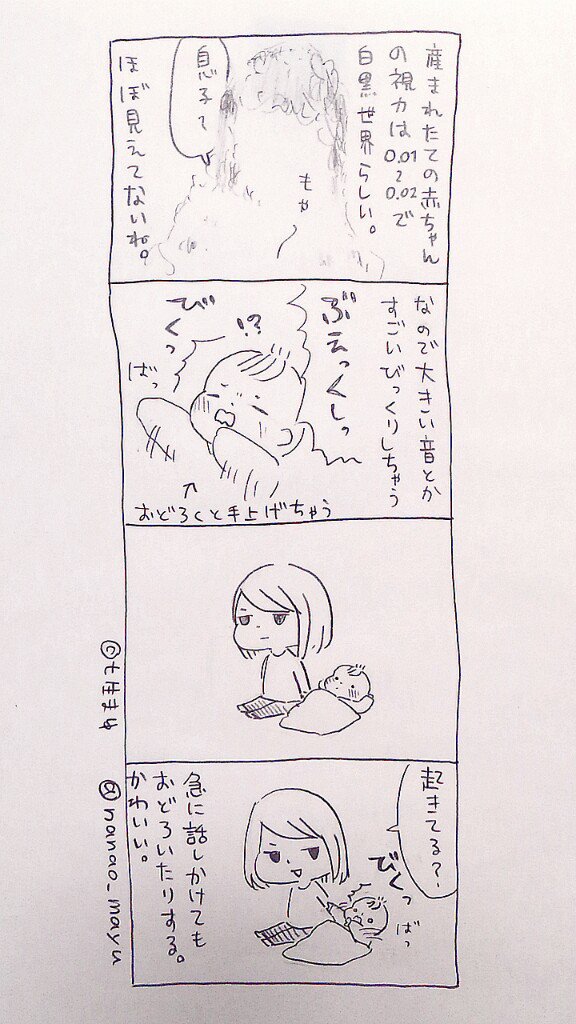 産まれたての赤ちゃん
の視力は0.01~0.02で
白黒世界らしい。
もや
息子〜
ほぼ見えてないね。
なので大きい音とか
すごいびっくりしちゃう
ぶえっくしっ
!?
びくっ
ばっ
おどろくと手上げちゃう
起きてる?
びくっ
ばっ
急に話しかけても
おどろいたりする。
かわいい。
@nanao_mayu